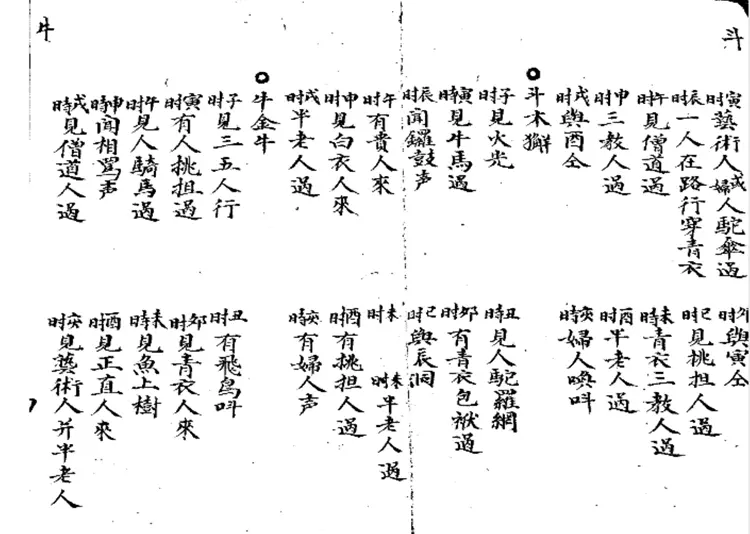 斗
寅時藝術人或婦人駝傘過
卯時與寅仝
辰時一人在路行穿青衣
巳時見挑担人過
午時見僧道過
未時青衣三教人過
申時三教人過
酉時半老人過
戌時與酉仝
亥時婦人喚呌
斗木獬
子時見火光
丑時見人駝羅網
寅時見牛馬過
卯時有青衣包袱過
辰時聞鑼鼓声
巳時與辰同
午時有貴人來
未時
未時半老人過
申時見白衣人來
酉時有挑担人過
戌時半老人過
亥時有婦人声
牛金牛
子時見三五人行
丑時有飛鳥呌
寅時有人挑担過
卯時見青衣人來
午時見人騎馬過
未時見魚上樹
申時聞相罵声
酉時見正直人來
戌時見僧道人過
亥時見藝術人并半老人
牛